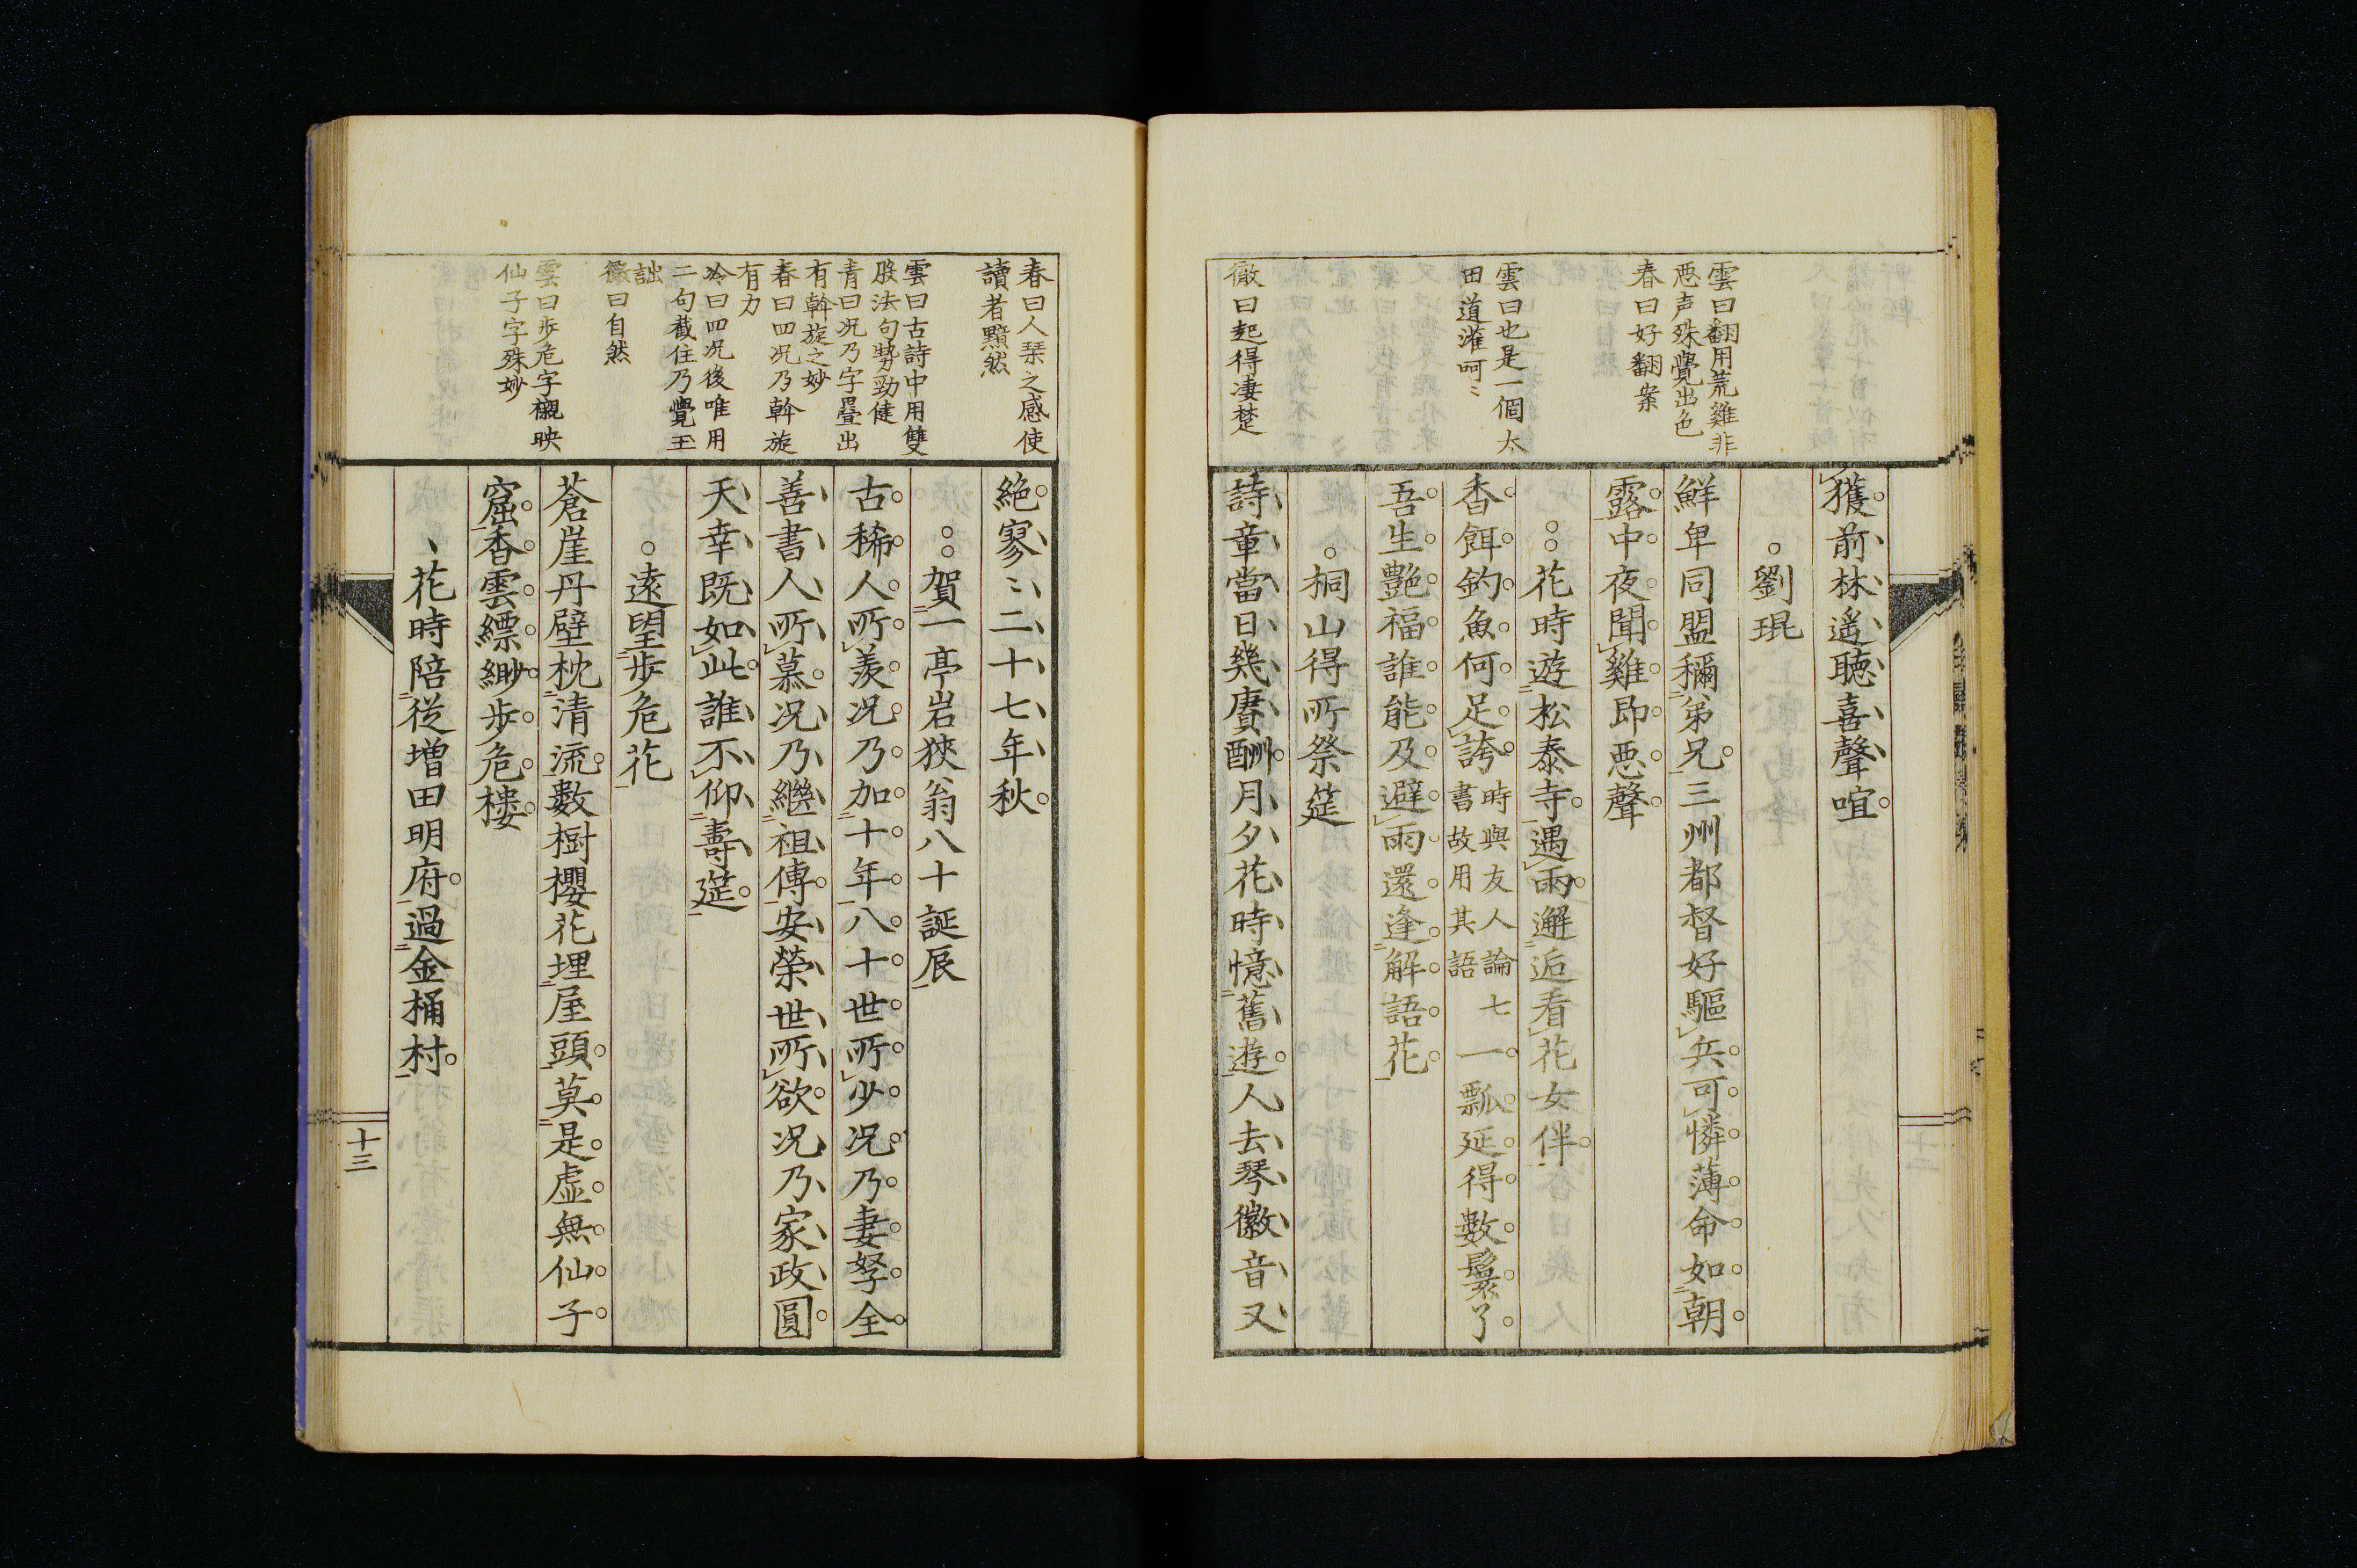 雲曰翻用荒雞非
悪声殊覺出色
春曰好翻案
雲曰也是一個太
田道灌呵〻
徹曰起得凄楚
獲前林遥聴喜聲喧
劉琨
鮮卑同盟稱弟兄三州都督好驅兵可憐薄命如朝
露中夜聞雞即悪聲
花時遊松泰寺遇雨邂逅看花女伴
香餌釣魚何足誇時與友人論七書故用其語一瓢延得數鬟了
吾生艷福誰能及避雨還逢解語花
桐山得所祭筵
詩章當日幾賡酬月夕花時憶舊遊人去琴徽音又
春曰人琴之感使
讀者黯然
雲曰古詩中用雙
股法句勢勁健
青曰况乃字疊出
有斡旋之妙
春曰四况乃斡旋
有力
冷曰四况後唯用
二句截住乃覺王
詘
徹曰自然
雲曰歩危字襯映
仙子字殊妙
絶寥〻二十七年秋
賀一亭岩狹翁八十誕辰
古稀人所羨况乃加十年八十世所少况乃妻孥全
善書人所慕况乃繼祖傳安榮世所欲况乃家政圓
天幸既如此誰不仰壽筵
遠望歩危花
蒼崖丹壁枕清流數樹櫻花埋屋頭莫是虚無仙子
窟香雲縹緲歩危樓
花時陪従増田明府過金桶村
十三